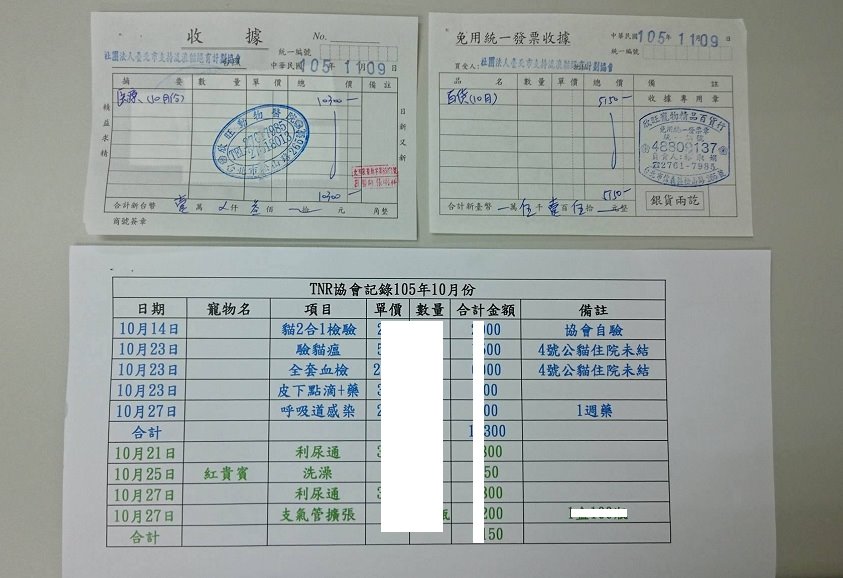 收據 No.
統一編號
社團法人臺北市支持流浪貓絕育計劃協會
中華民國 105年 11月 09日
摘要 數量 單價 總價 備註
醫療(10月份) 10300-
欣旺動物醫院
精益求精
日新又新
10300-
合計新台幣 壹萬 仟 叁佰 拾 元 角整
商號簽章
免用統一發票收據
中華民國 105年 11月 09日
統一編號
買受人: 社團法人臺北市支持流浪貓絕育計劃協會
品名 數量 單價 總價 備註
收據專用章
百貨(10月) 5150-
欣旺寵物精品百貨行
免用統一發票章
48809137
2761-7985
5150-
合計新臺幣 萬 伍千 壹百 伍拾 元整
銀貨兩訖
TNR協會記錄105年10月份
日期 寵物名 項目 單價 數量 合計金額 備註
10月14日 貓2合1檢驗 2 2 000 協會自驗
10月23日 驗貓瘟 5 500 4號公貓住院未結
10月23日 全套血檢 2 000 4號公貓住院未結
10月23日 皮下點滴+藥 3 00
10月27日 呼吸道感染 2 00 1週藥
合計 1 300
10月21日 利尿通 3 800
10月25日 紅貴賓 洗澡 50
10月27日 利尿通 3 800
10月27日 支氣管擴張 200
合計 150